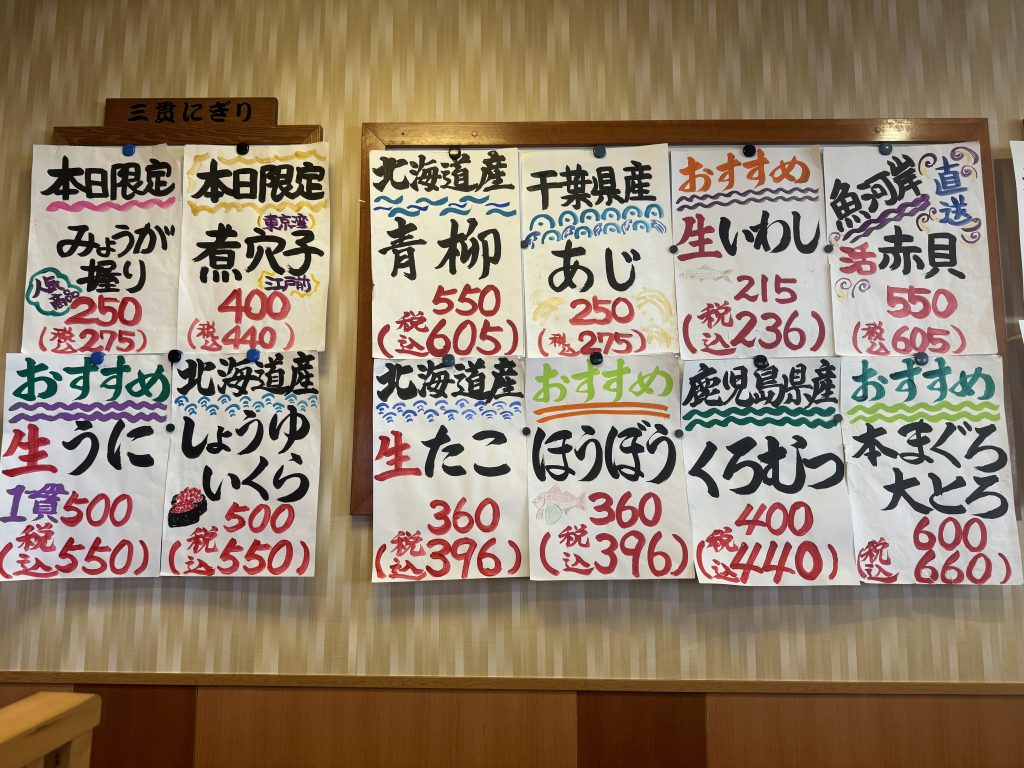 三貫にぎり
本日限定
みょうが
握り
人気商品
250
(税込275)
本日限定
東京湾
煮穴子
江戸前
400
(税込440)
おすすめ
生うに
1貫500
(税込550)
北海道産
しょうゆ
いくら
500
(税込550)
北海道産
青柳
550
(税込605)
千葉県産
あじ
250
(税込275)
おすすめ
生いわし
215
(税込236)
魚河岸
直送
活赤貝
550
(税込605)
北海道産
生たこ
360
(税込396)
おすすめ
ほうぼう
360
(税込396)
鹿児島県産
くろむつ
400
(税込440)
おすすめ
本まぐろ
大とろ
600
(税込660)